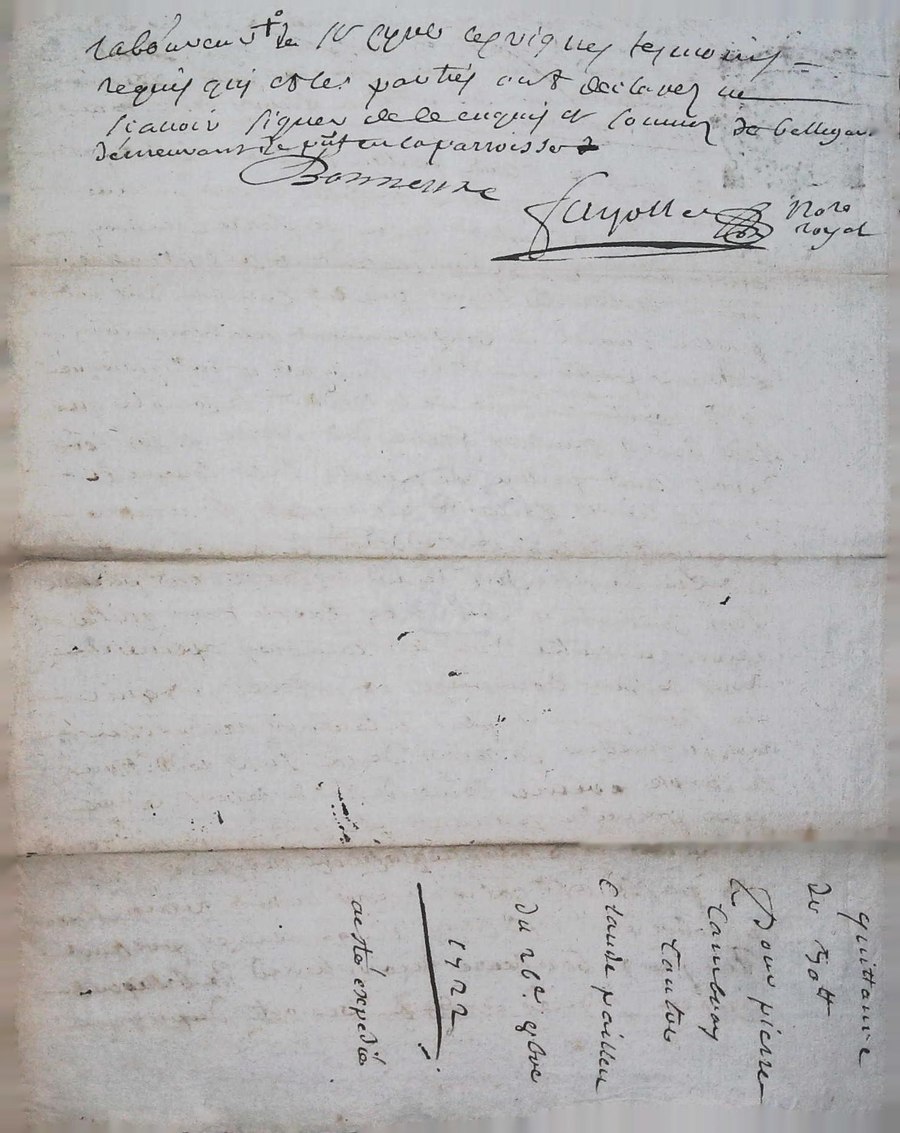 laboureur de St Cyr les vignes tesmoins
requis qui et les parties ont declarez ne
scavoir signer de ce enquis et sommez de bellegar
demeurant de pnt en la parroisse
Bonnerine
Fayolle Nore
royal
quittance
de 30tt
pour pierre
Combray
Contre
Claude paillou
du 26e 9bre
1722
acte expedié